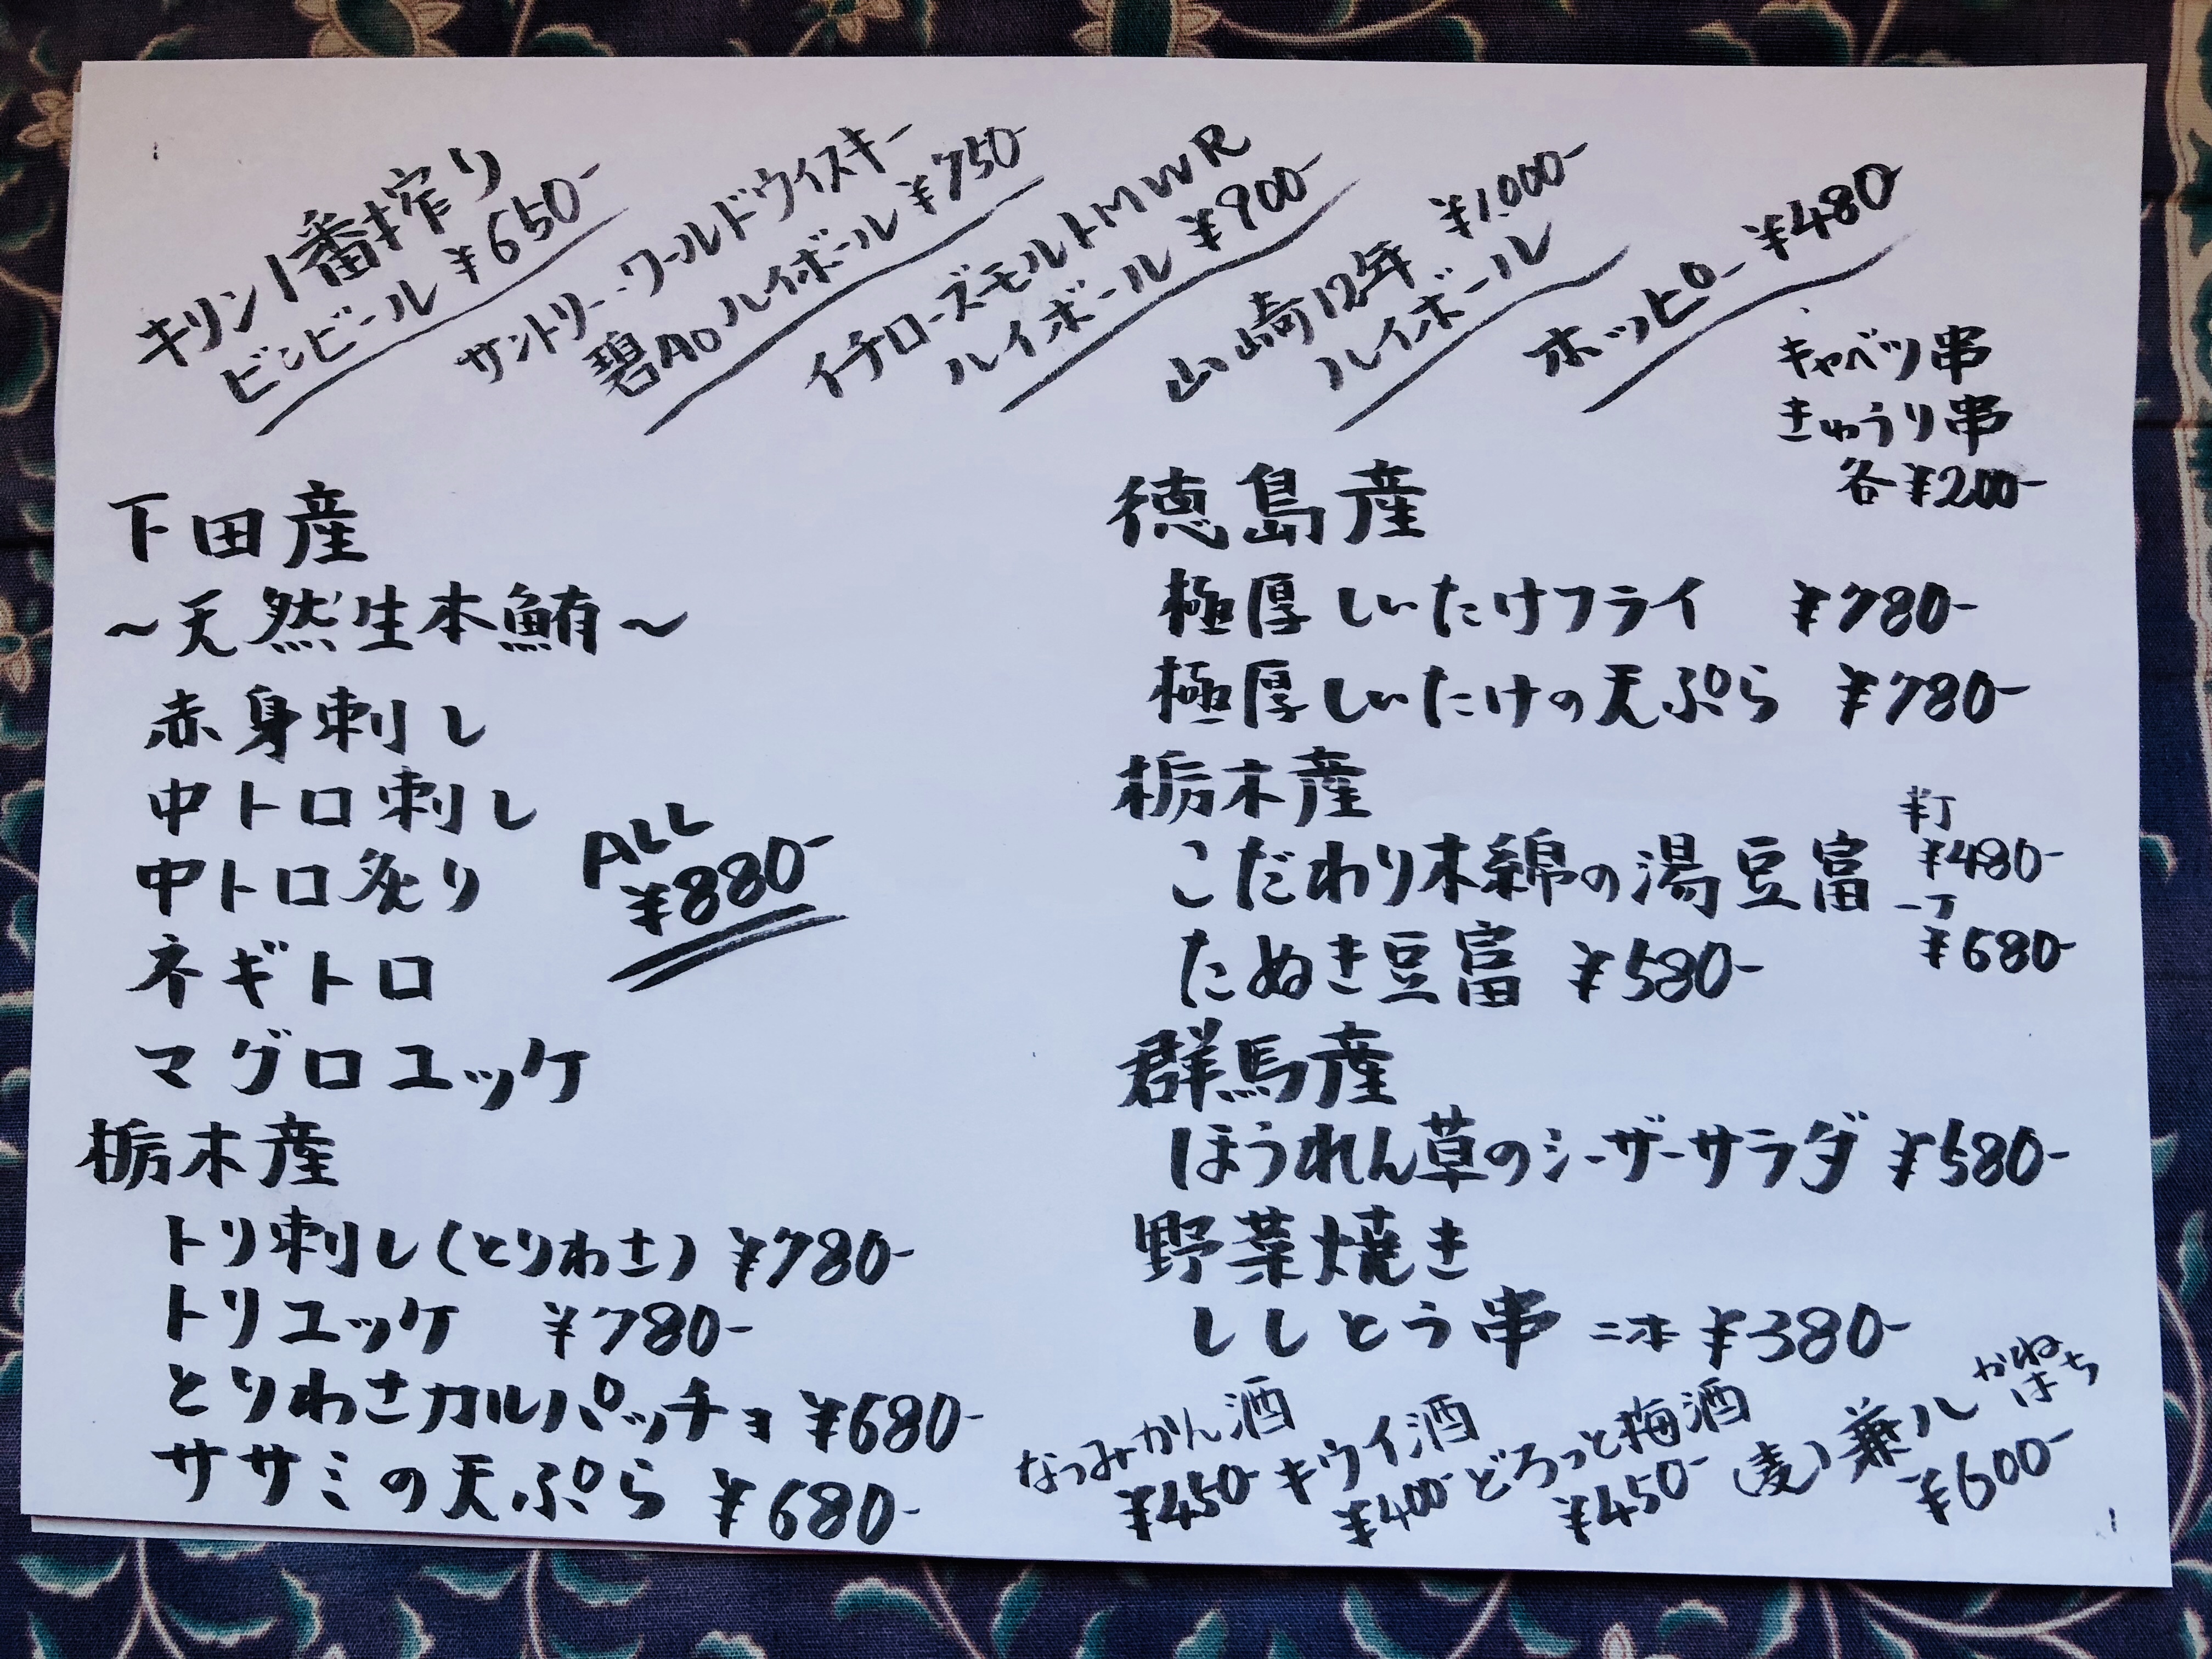 キリン1番搾り
ビンビール ¥650-
サントリー・ワールドウイスキー
碧Aoハイボール ¥750-
イチローズモルトMWR
ハイボール ¥900-
山崎12年 ¥1.000-
ハイボール
ホッピー ¥480
キャベツ串
きゅうり串
各¥200-
下田産
~天然生本鮪~
赤身刺し
中トロ刺し
中トロ炙り
ネギトロ
マグロユッケ
ALL
¥880-
栃木産
トリ刺し(とりわさ) ¥780-
トリユッケ ¥780-
とりわさカルパッチョ ¥680-
ササミの天ぷら ¥680-
徳島産
極厚しいたけフライ ¥780-
極厚しいたけの天ぷら ¥780-
栃木産
こだわり木綿の湯豆富
半丁
¥480-
一丁
¥680-
たぬき豆富 ¥580-
群馬産
ほうれん草のシーザーサラダ ¥580-
野菜焼き
ししとう串 二本 ¥380-
なつみかん酒
¥450-
キウイ酒
¥400-
どろっと梅酒
¥450-
(麦)兼八 かねはち
¥600-